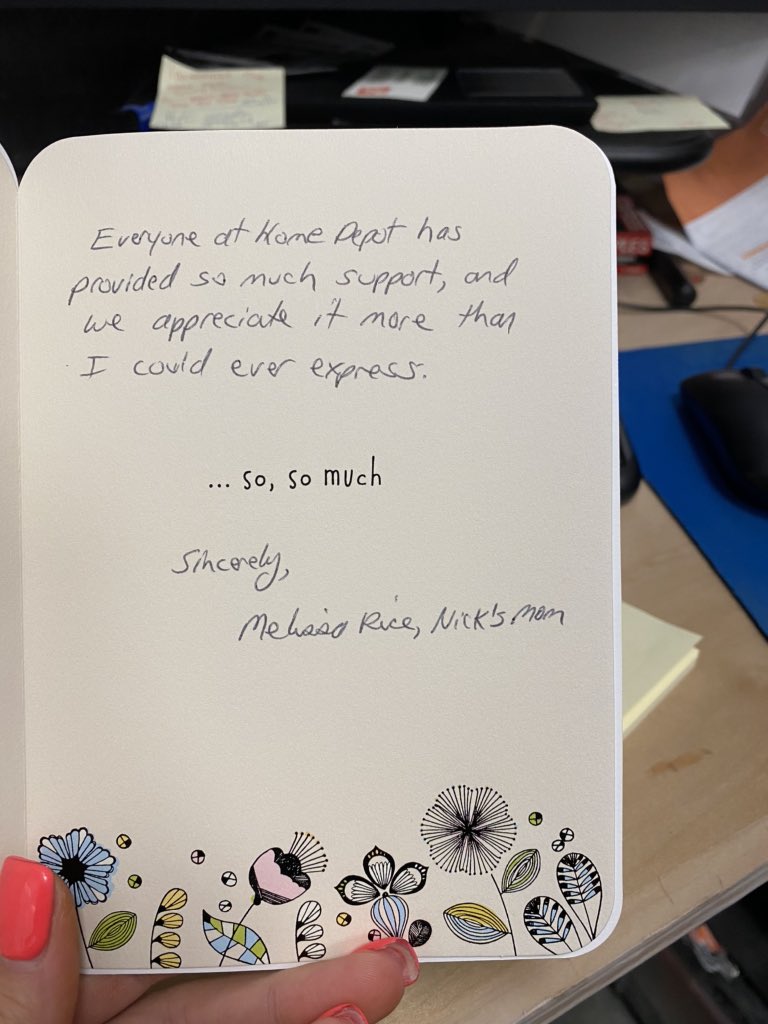 Everyone at Home Depot has
provided so much support, and
we appreciate it more than
I could ever express.
... so, so much
Sincerely,
Melissa Rice, Nick's mom